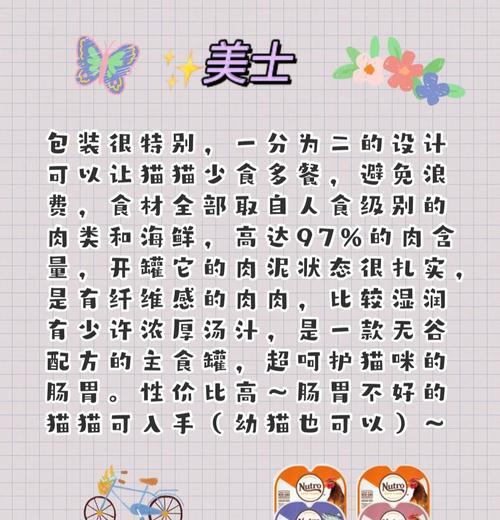 美士
包装很特别，一分为二的设计
可以让猫猫少食多餐，避免浪
费，食材全部取自人食级别的
肉类和海鲜，高达97%的肉含
量，开罐它的肉泥状态很扎实，
是有纤维感的肉肉，比较湿润
有少许浓厚汤汁，是一款无谷
配方的主食罐，超呵护猫咪的
肠胃。性价比高～肠胃不好的
猫猫可入手（幼猫也可以）～
Nutro Nutro